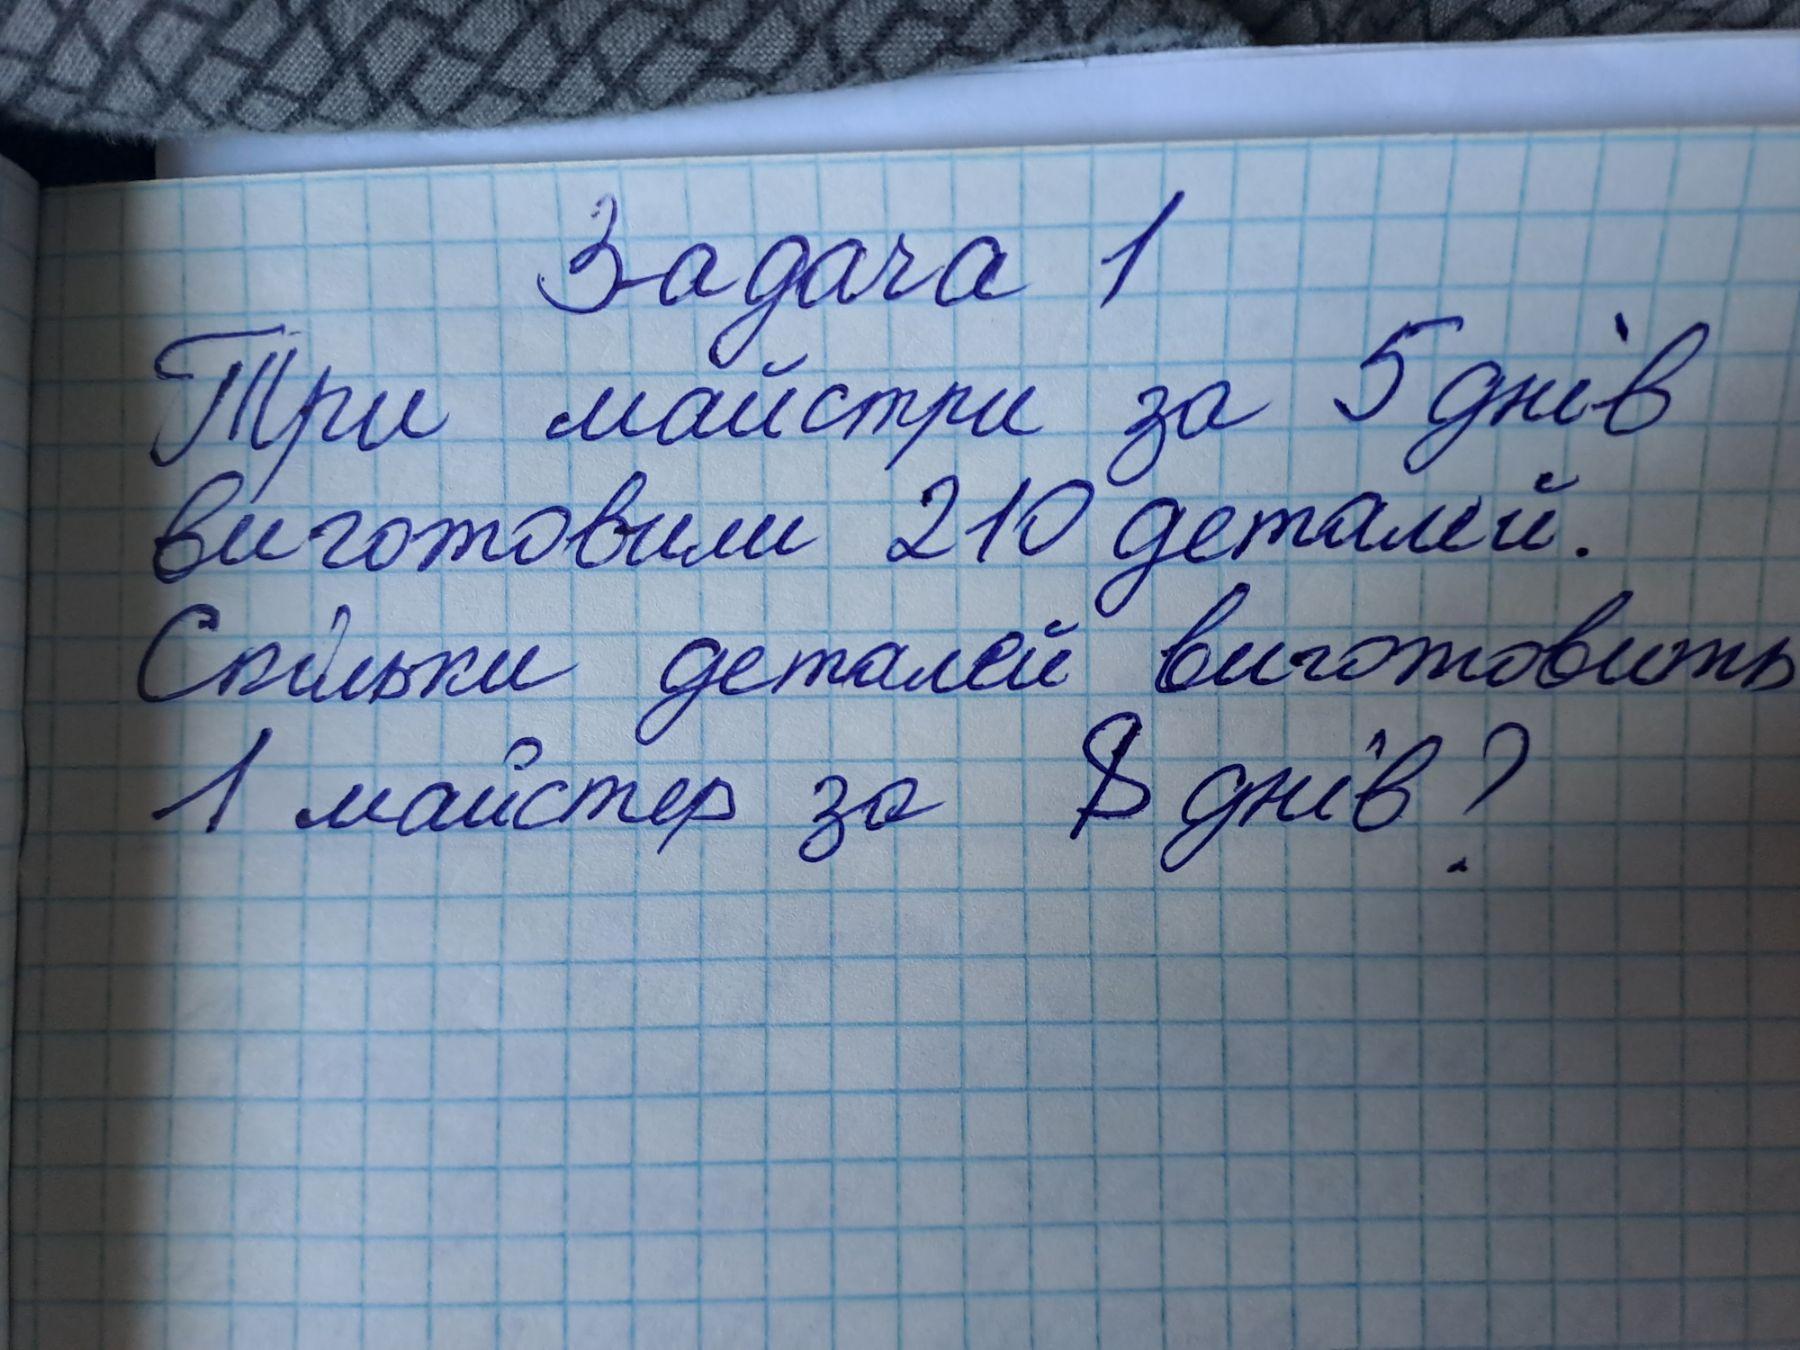 Задача 1
Три майстри за 5 днів
виготовили 210 деталей.
Скільки деталей виготовить
1 майстер за 8 днів?